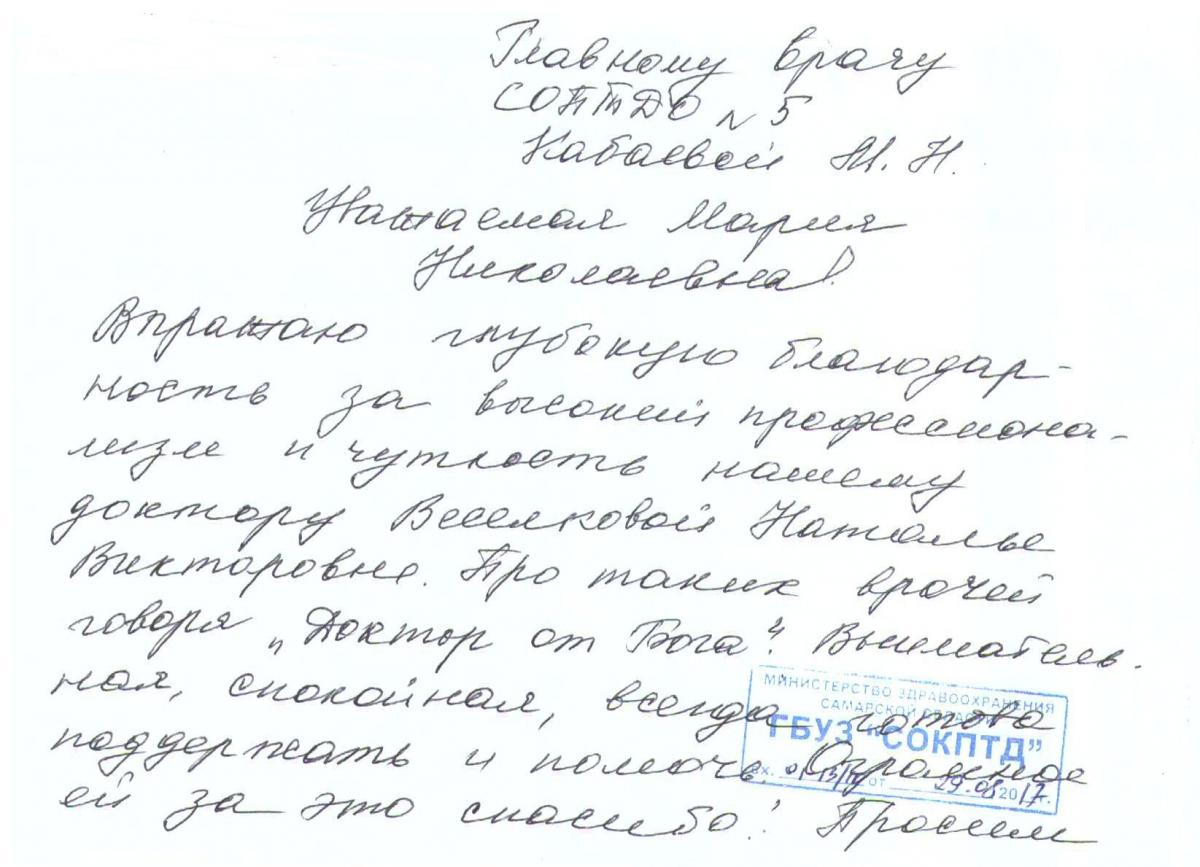 Главному врачу
СОПТДО № 5
Кабаевой М. Н.
Уважаемая Мария
Николаевна!
Выражаю глубокую благодар-
ность за высокий профессиона-
лизм и чуткость нашему
доктору Веселковой Наталье
Викторовне. Про таких врачей
говоря „Доктор от Бога“. Вниматель-
ная, спокойная, всегда готова
поддержать и помочь. Огромное
ей за это спасибо! Просим
МИНИСТЕРСТВО ЗДРАВООХРАНЕНИЯ
САМАРСКОЙ ОБЛАСТИ
ГБУЗ "СОКПТД"
вх. от 29.08 2017 г.